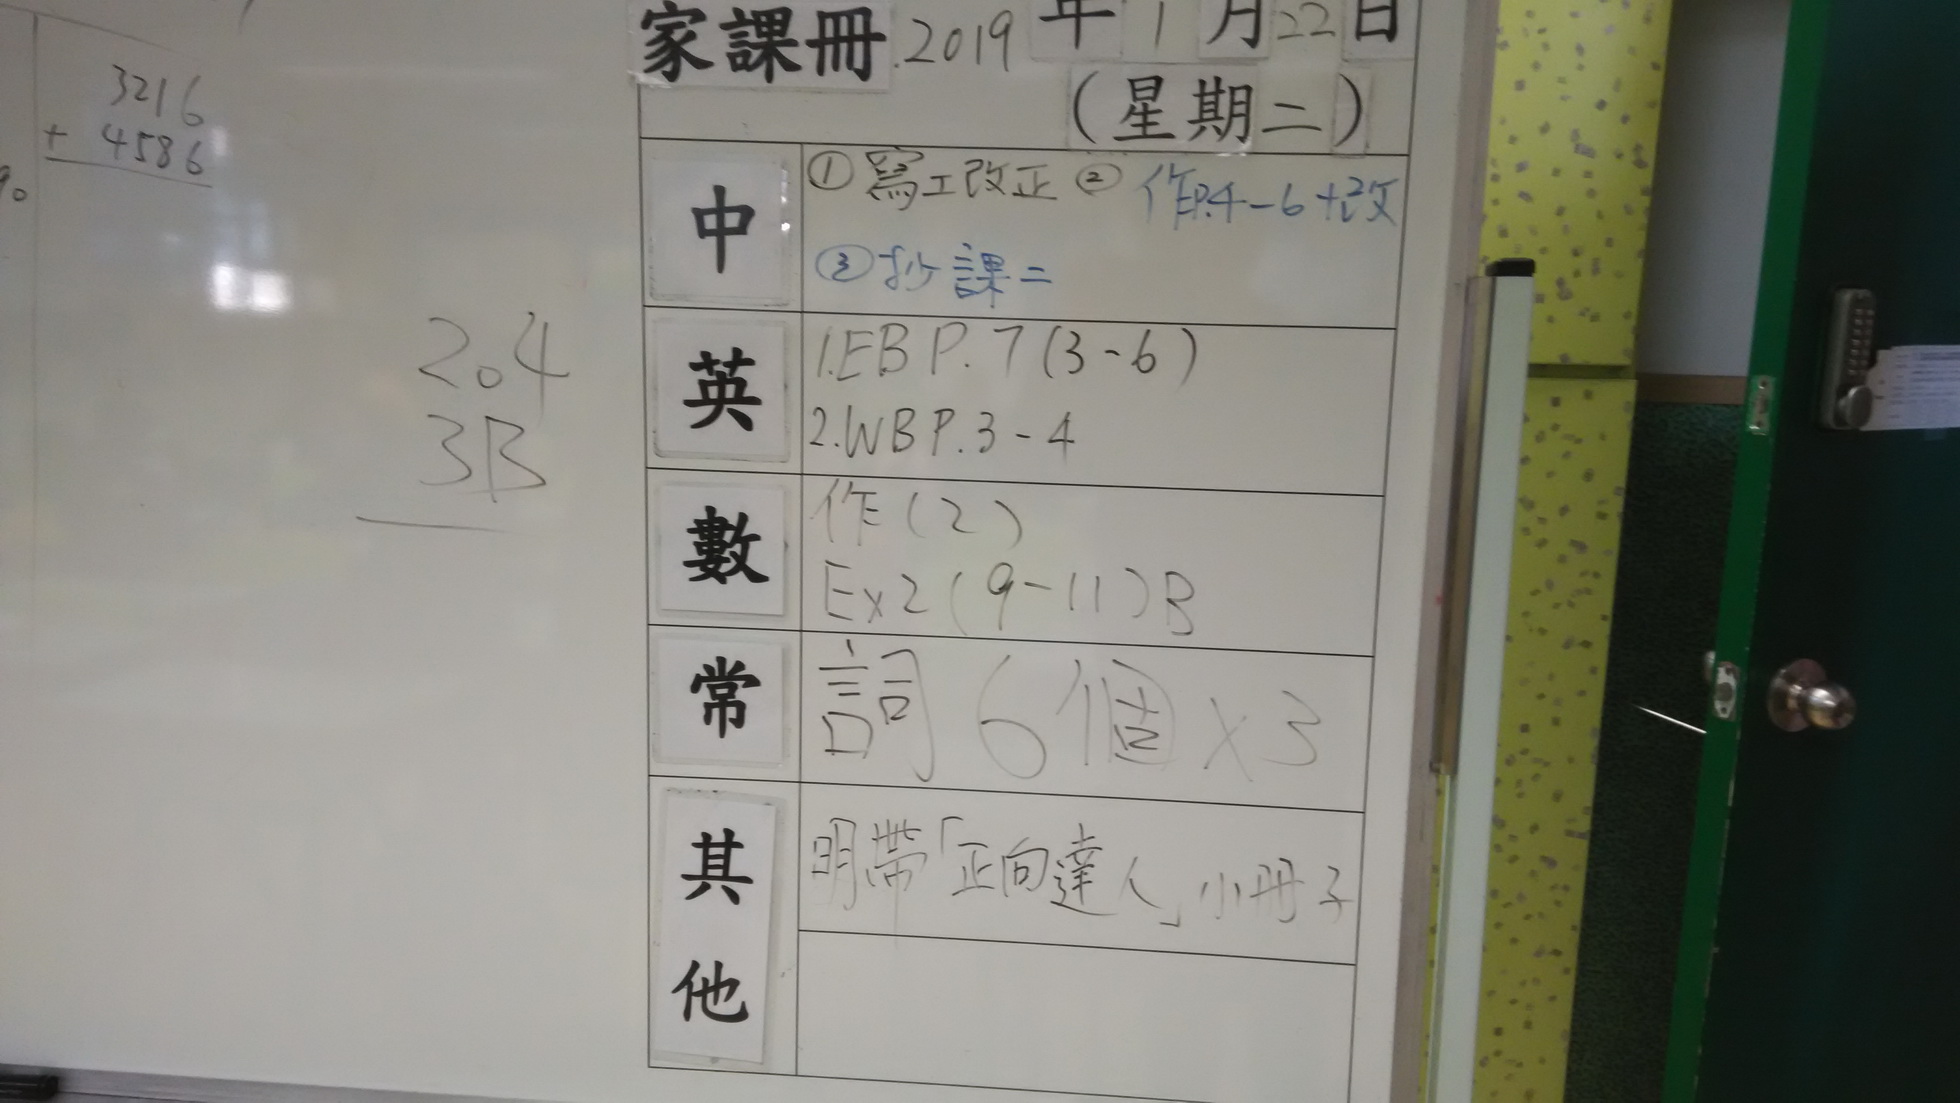 3216
+ 4586
2.4
3B
家課冊.2019年1月22日
(星期二)
中
①寫工改正 ② 作P.4-6+改
③抄課二
英
1.EB P.7(3-6)
2.WB P.3-4
數
作(2)
Ex2(9-11)B
常
詞6個x3
其他
明帶「正向達人」小冊子